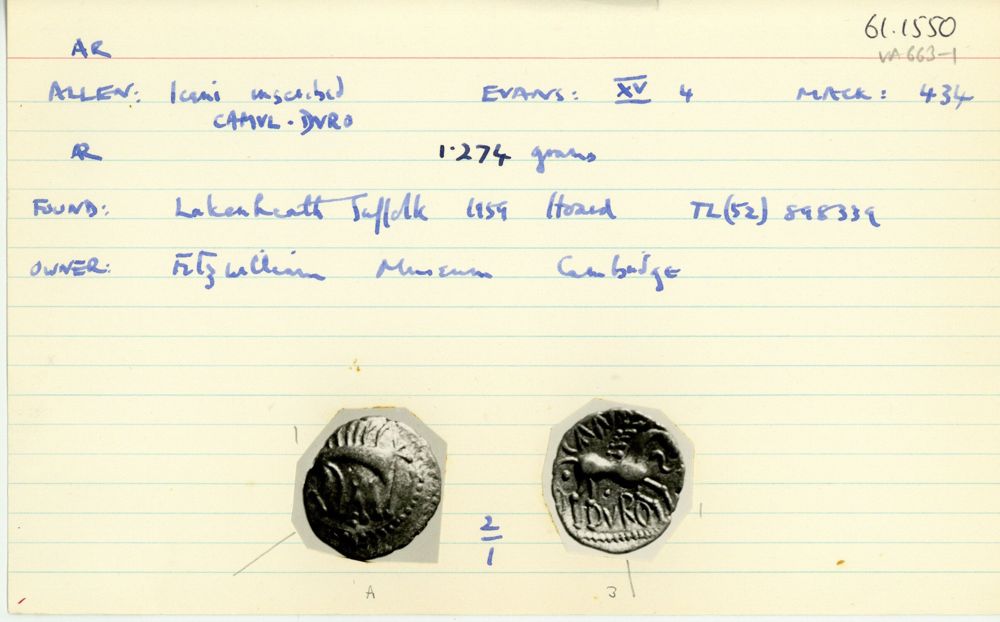 61.1550
AR VA 663-1
ALLEN: Iceni inscribed EVANS: XV 4 MACK: 434
CAMVL·DVRO
AR 1·274 grams
FOUND: Lakenheath Suffolk 1959 Hoard TL(52) 898339
OWNER: Fitzwilliam Museum Cambridge
CAN
DVRO
2
1
A 3